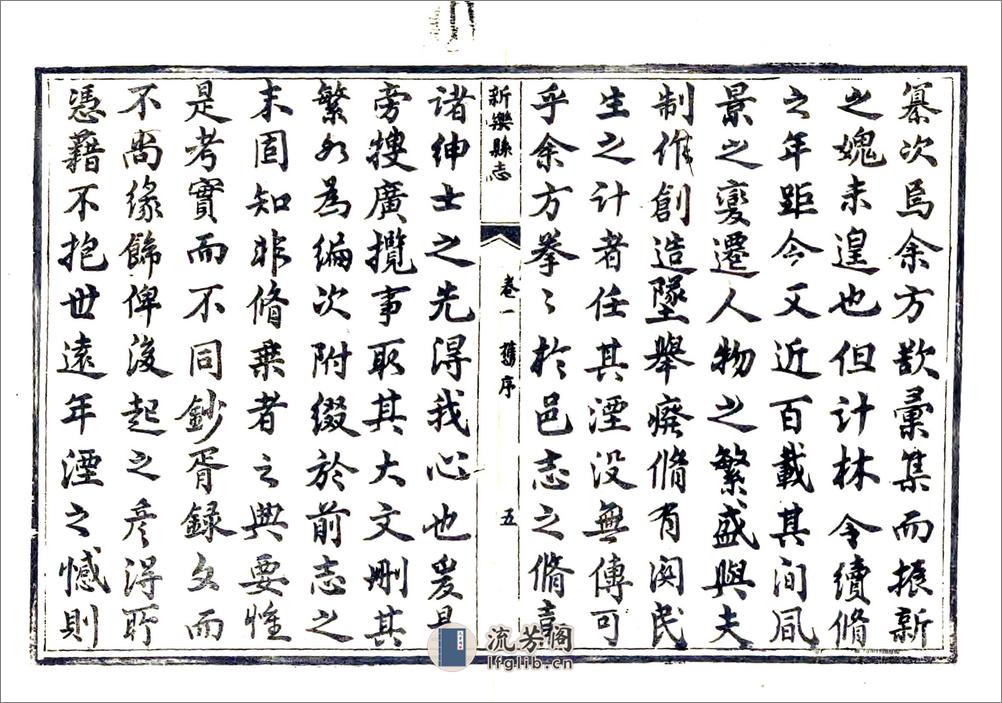 纂次焉余方歆彙集而振新
之媿未遑也但計林令續脩
之年距今又近百載其间風
景之變遷人物之繁盛與夫
制作創造墜舉癈脩有関民
生之計者任其湮没無傳可
乎余方拳〻於邑志之脩
新樂縣志
卷一
舊序
五
诸绅士之先得我心也爰
旁搜廣攬事取其大文刪其
繁攵為编次附缀於前志之
末固知非脩乗者之典要惟
是考實而不同鈔胥録攵而
不尚缘餙俾後起之彦得所
憑藉不抱世遠年湮之憾则
流芳阁
lfglib.cn